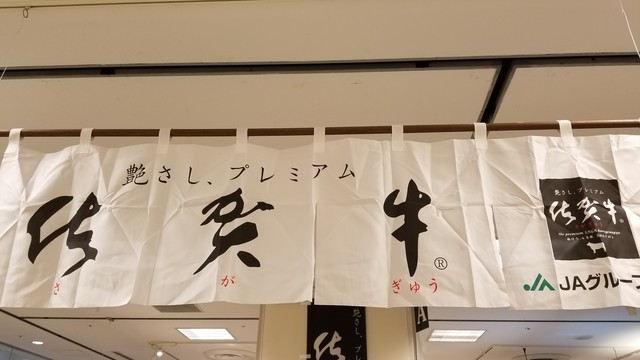 艶さし、プレミアム
佐賀牛®
さ が ぎゅう
艶さし、プレミアム
佐賀牛®
JAグループ
艶さし、プレ
佐
A